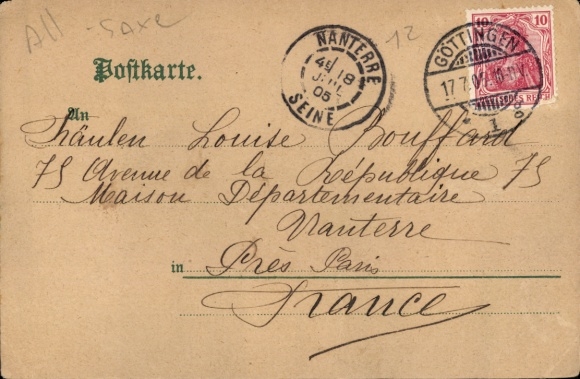 All - Saxe
12
Postkarte.
NANTERRE
4E 18
JUIL
05
SEINE
GÖTTINGEN
17.7.05
1
10 10
DEUTSCHES REICH
An Fräulen Louise Bouffard
75 Avenue de la République 75
Maison Départementaire
Nanterre
in Près Paris
France